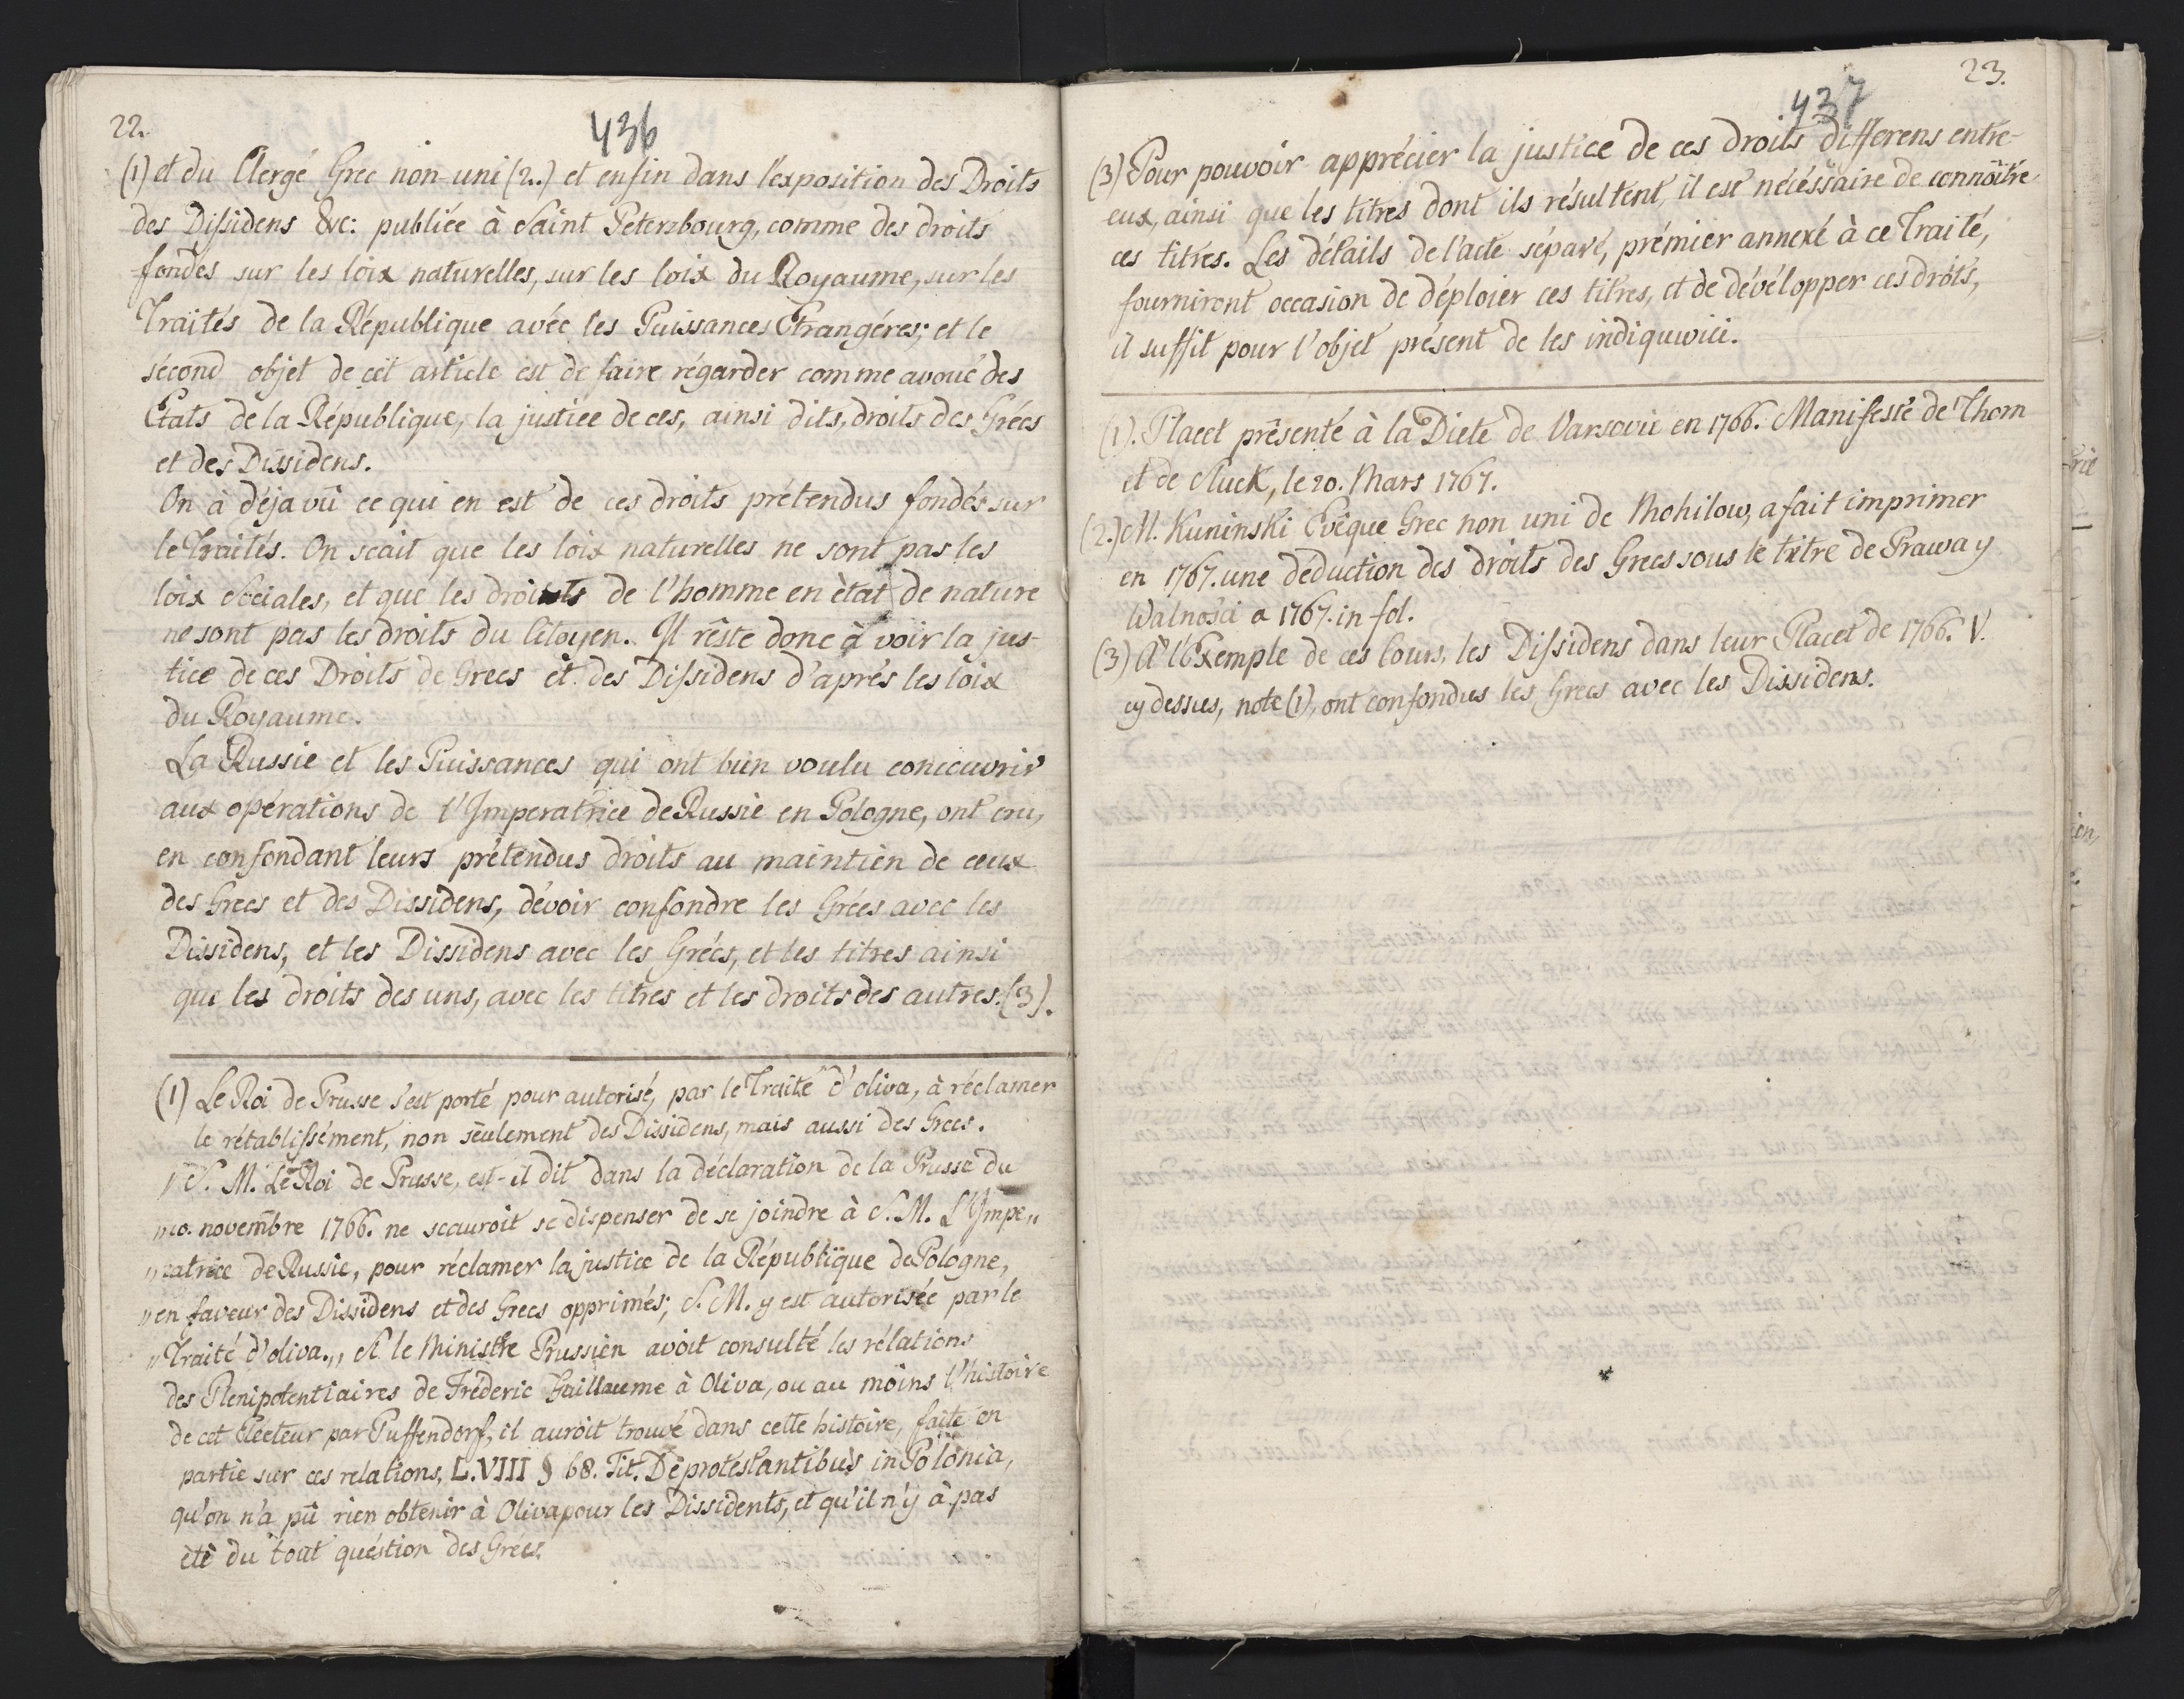 22.
436
(1) et du Clergé Grec non-uni (2.) et enfin dans l'exposition des Droits
des Dissidens &c: publiée à Saint Petersbourg, comme des droits
fondés sur les loix naturelles, sur les loix du Royaume, sur les
Traités de la République avéc les Puissances Etrangéres; et le
sécond objet de cèt article est de faire régarder comme avoué des
Etats de la République, la justice de ces, ainsi dits, droits des Grécs
et des Dissidens.
On à déja vû ce qui en est de ces droits prétendus fondés sur
le Traités. On scait que les loix naturelles ne sont pas les
loix Sociales, et que les droits de l'homme en ètat de nature
ne sont pas les droits du Citoyen. Il réste donc à voir la jus-
tice de ces Droits de Grecs et des Dissidens d'aprés les loix
du Royaume.
La Russie et les Puissances qui ont bien voulu concouvrir
aux opérations de l'Imperatrice de Russie en Pologne, ont cru,
en confondant leurs prétendus droits au maintien de ceux
des Grecs et des Dissidens, dévoir confondre les Grécs avec les
Dissidens, et les Dissidens avec les Grécs, et les titres ainsi
que les droits des uns, avec les titres et les droits des autres. (3).
(1) Le Roi de Prusse s'est porté pour autorisé, par le Traité d'oliva, à réclamer
le rétablissément, non séulement des Dissidens, mais aussi des Grecs.
„ S. M. Le Roi de Prusse, est-il dit dans la déclaration de la Prusse du
„ 10. novembre 1766. ne scauroit se dispenser de se joindre à S. M. L'Impe„
„ratrice de Russie, pour réclamer la justice de la République de Pologne,
„ en faveur des Dissidens et des Grecs opprimés; S. M. y est autorisée par le
„ Traité d'oliva.„ Si le Ministre Prussien avoit consulté les rélations
des Plenipotentiaires de Fréderic Guillaume à Oliva, ou au moins l'histoire
de cet Electeur par Puffendorf, il auroit trouvé dans cette histoire, faite en
partie sur ces relations, L. VIII § 68. Tit. De protéstantibus in Polonia,
qu'on n'a pû rien obtenir à Oliva pour les Dissidents, et qu'il n'y à pas
étè du tout quéstion des Grecs.
23.
437
(3) Pour pouvoir apprécier la justice de ces droits differens entre-
eux, ainsi que les titres dont ils résultent, il est nécéssaire de connoître
ces titres. Les détails de l'acte séparé, prémier annexé à ce Traité,
fourniront occasion de déploier ces titres, et de dévélopper ces dròts,
il suffit pour l'objet présent de les indiquwici.
(1). Placet présenté à la Diete de Varsovie en 1766. Manifeste de Thorn
et de Sluck, le 20. Mars 1767.
(2.) M. Kuninski Evêque Grec non uni de Mohilow, a fait imprimer
en 1767. une déduction des droits des Grecs sous le titre de Prawa y
Walnosci a 1767. in fol.
(3) A l'Exemple de ces Cours, les Dissidens dans leur Placet de 1766. V.
cy dessus, note (1), ont confondus les Grecs avec les Dissidens.